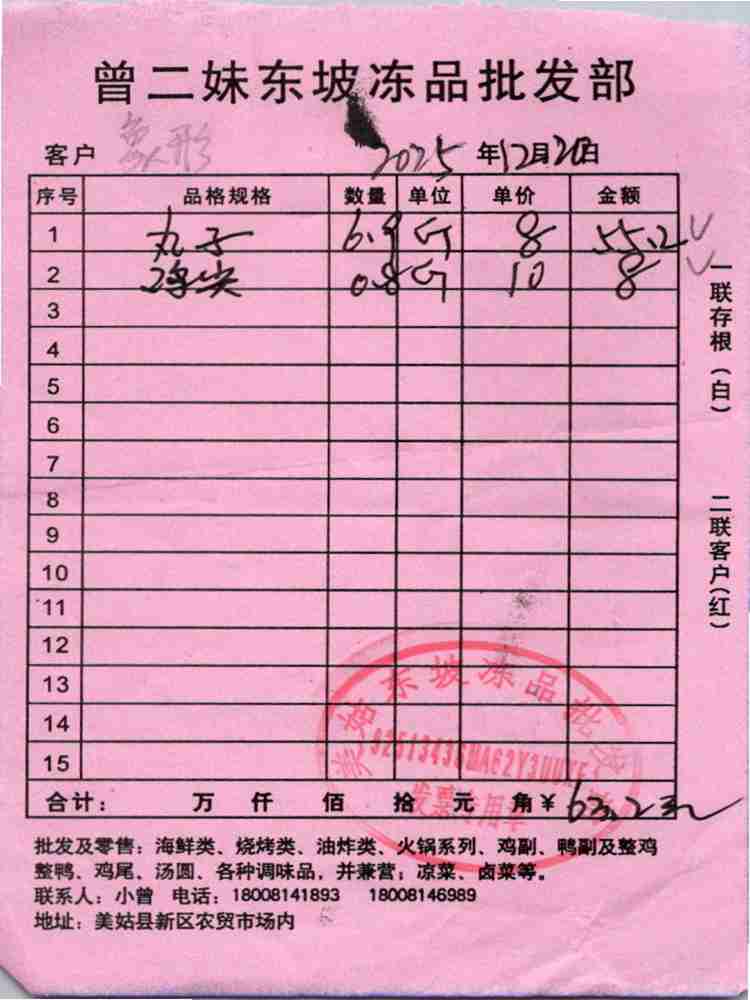 曾二妹东坡冻品批发部
客户 象形 2025年12月20日
序号 品格规格 数量 单位 单价 金额
1 丸子 6.9 斤 8 55.2
2 鸡尖 0.8 斤 10 8
3
4
5
6
7
8
9
10
11
12
13
14
15
合计： 万 仟 佰 拾 元 角 ¥ 63.2元
批发及零售：海鲜类、烧烤类、油炸类、火锅系列、鸡副、鸭副及整鸡
整鸭、鸡尾、汤圆、各种调味品，并兼营；凉菜、卤菜等。
联系人：小曾 电话：18008141893 18008146989
地址：美姑县新区农贸市场内
一联存根（白）
二联客户（红）
东坡冻品批发
发票专用章